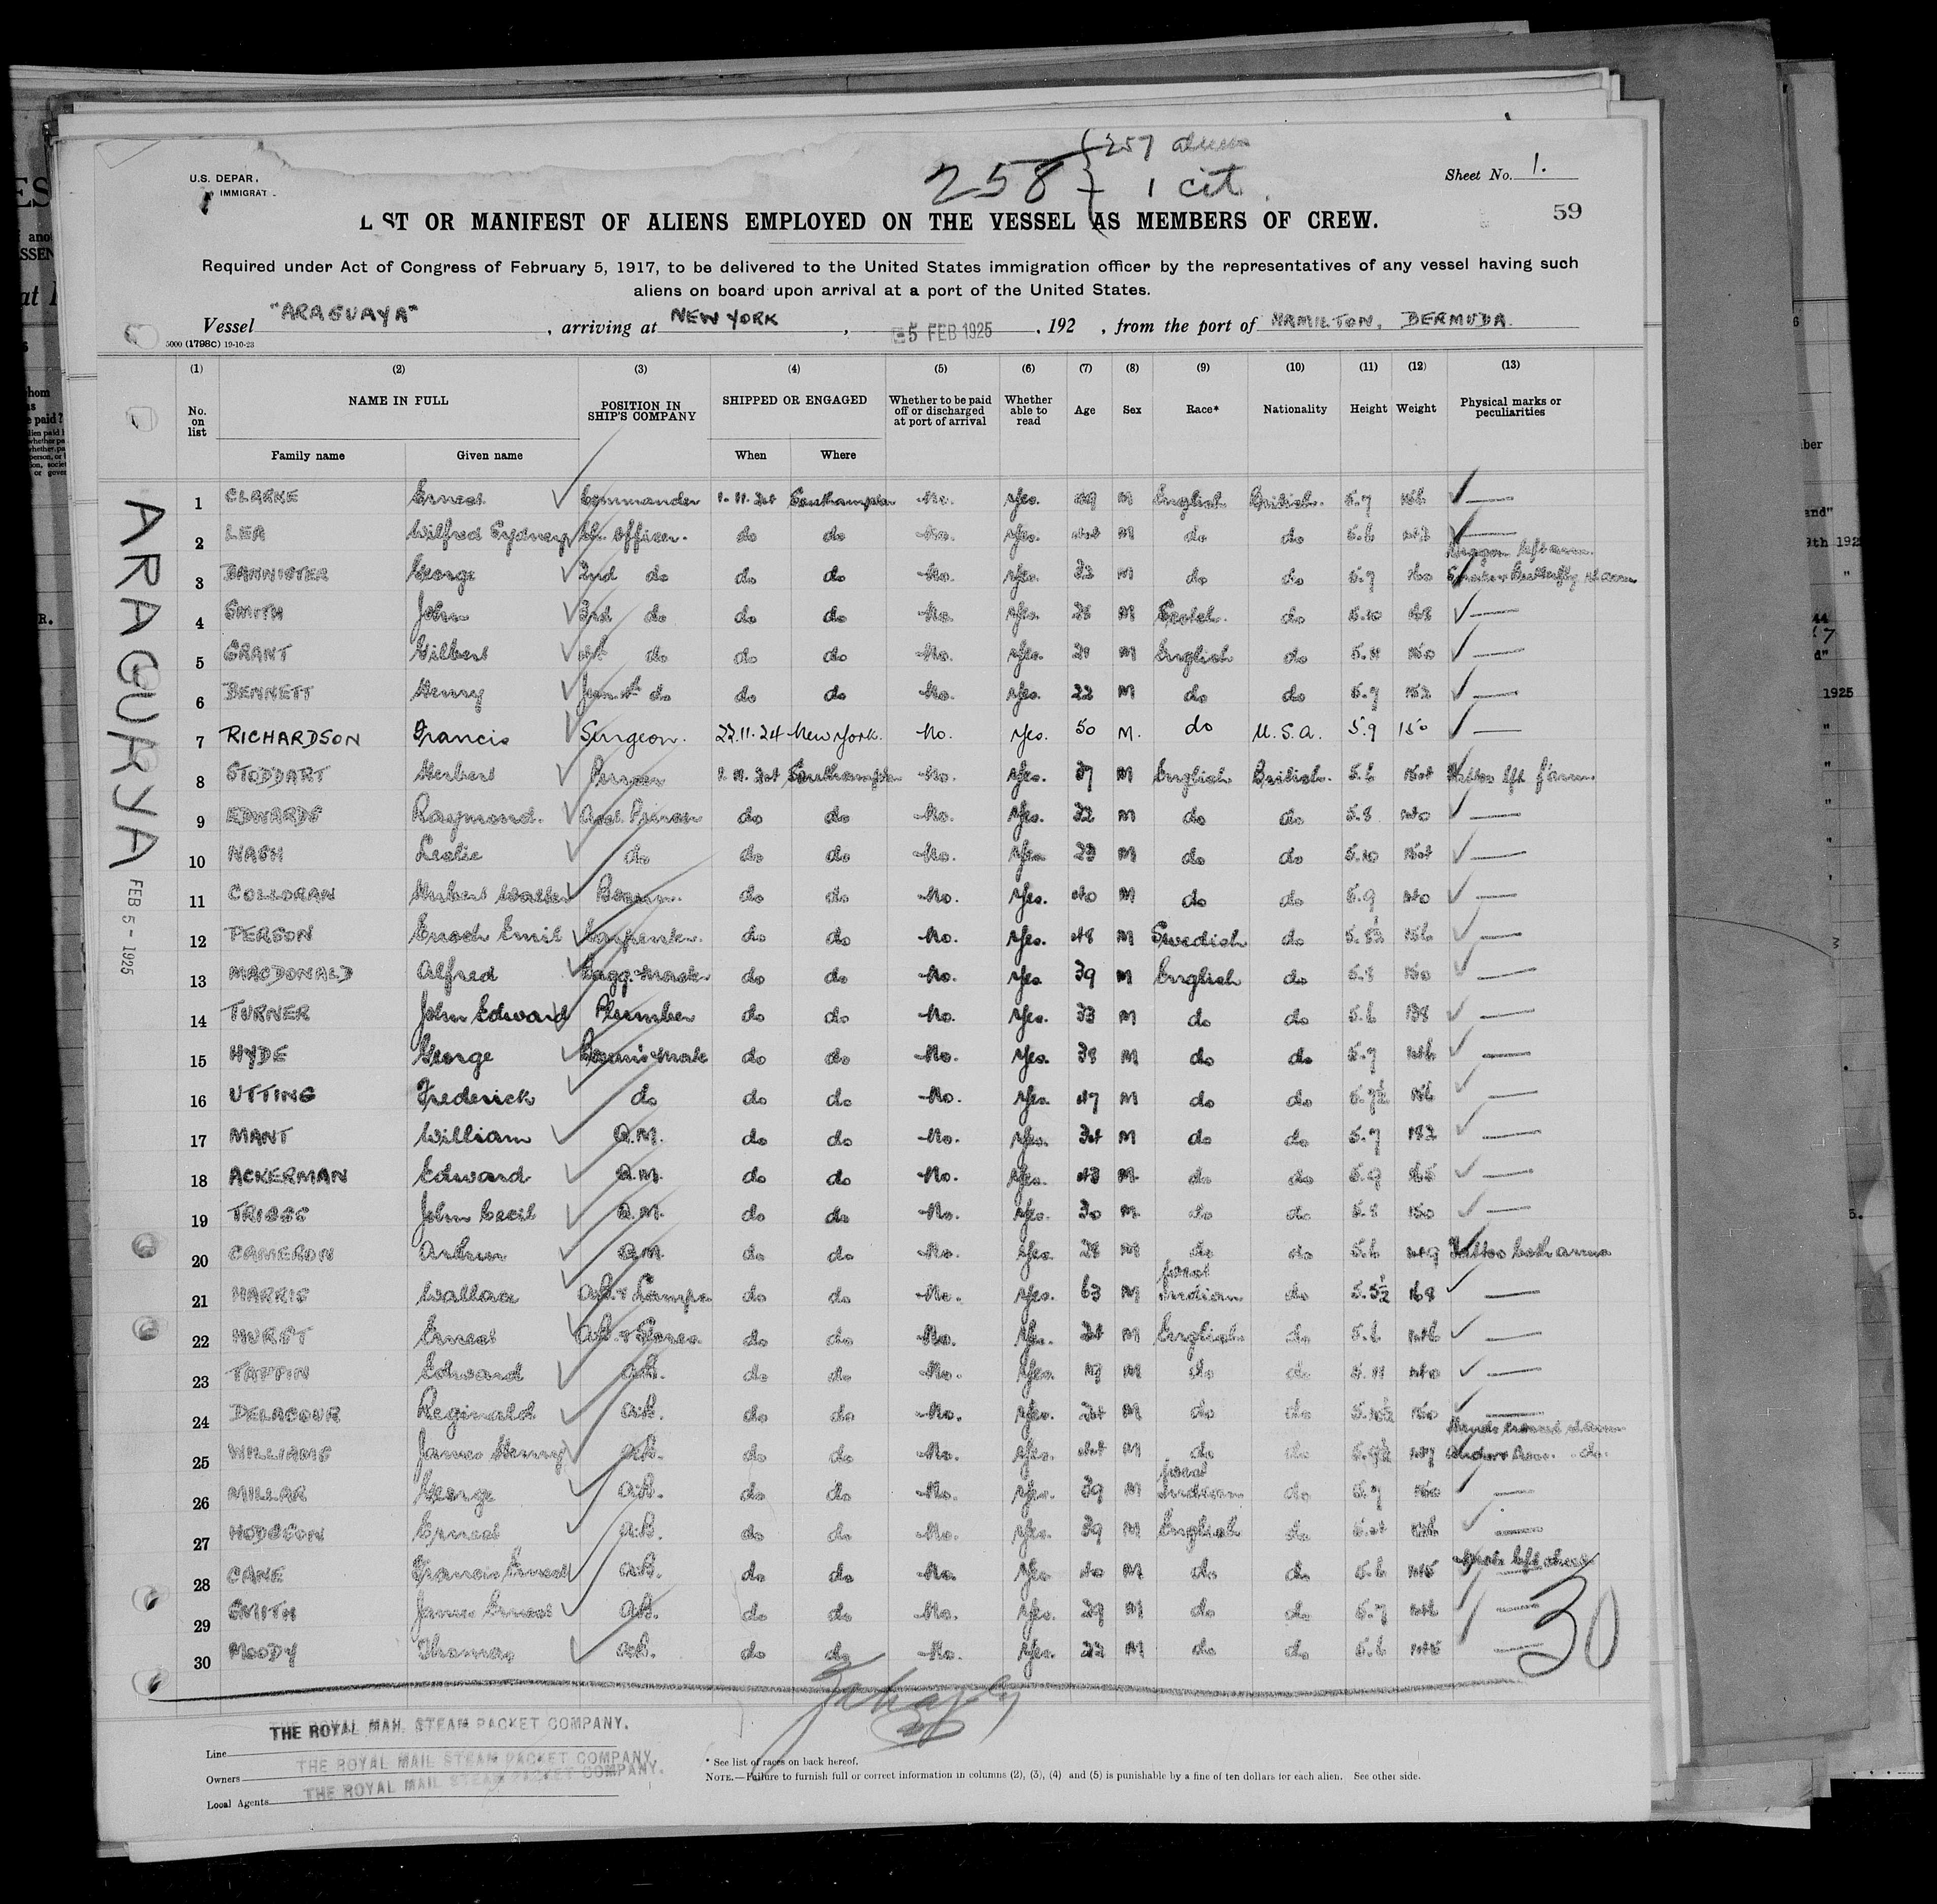 258 { 257 aliens
1 cit.
U.S. DEPAR.
IMMIGRAT
Sheet No. 1.
59
L ST OR MANIFEST OF ALIENS EMPLOYED ON THE VESSEL AS MEMBERS OF CREW.
Required under Act of Congress of February 5, 1917, to be delivered to the United States immigration officer by the representatives of any vessel having such
aliens on board upon arrival at a port of the United States.
Vessel "ARAGUAYA", arriving at NEW YORK, 5 FEB 1925, 192 , from the port of HAMILTON, BERMUDA.
5000 (1798C) 19-10-23
(1) (2) (3) (4) (5) (6) (7) (8) (9) (10) (11) (12) (13)
No. on list NAME IN FULL POSITION IN SHIP'S COMPANY SHIPPED OR ENGAGED Whether to be paid off or discharged at port of arrival Whether able to read Age Sex Race* Nationality Height Weight Physical marks or peculiarities
Family name Given name When Where
1 CLARKE Ernest Commander 1.11.24 Southampton No. Yes. 49 M English British. 5.7
2 LEA Wilfred Sydney Ch. Officer. do do No. Yes. 44 M do do 5.6
3 BANNISTER George 2nd do do do No. Yes. 32 M do do 5.7 Dragon left arm. Butterfly
4 SMITH John 3rd do do do No. Yes. 28 M Scotch. do 5.10
5 GRANT Gilbert 4th do do do No. Yes. 21 M English do 5.11 150
6 BENNETT Henry do do do No. Yes. 22 M do do 5.7 152
7 RICHARDSON Francis Surgeon. 22.11.24 New York. No. Yes. 50 M. do U.S.A. 5.9 150
8 STODDART Herbert Purser 1.11.24 Southampton No. Yes. 37 M English British. 5.6 154 Tattoo lft f'arm.
9 EDWARDS Raymond. Asst. Purser do do No. Yes. 32 M do do 5.8 140
10 NASH Leslie do do do No. Yes 23 M do do 5.10 154
11 COLLORAN Hubert Walter Bosun. do do No. Yes. 40 M do do 5.9 140
12 PERSON Enoch Emil Carpenter. do do No. Yes. 48 M Swedish do 5.8½ 156
13 MACDONALD Alfred Bagg. Master do do No. Yes 39 M English do 5.8 150
14 TURNER John Edward Plumber do do No. Yes. 33 M do do 5.6 138
15 HYDE George Bosun's mate do do No. Yes. 38 M do do 5.7 146
16 UTTING Frederick do do do No. Yes. 47 M do do 5.7½ 156
17 MANT William Q.M. do do No. Yes. 34 M do do 5.7 182
18 ACKERMAN Edward Q.M. do do No. Yes. 43 M do do 5.9 165
19 TRIGGS John Cecil Q.M. do do No. Yes. 30 M do do 5.8 150
20 CAMERON Arthur Q.M. do do No. Yes. 28 M do do 5.6 149 Tattoo both arms
21 HARRIS Wallace A.B. & Lamps do do No. Yes. 63 M West Indian do 5.5½ 168
22 HURST Ernest A.B. & Stores. do do No. Yes. 24 M English do 5.6 146
23 TAPPIN Edward A.B. do do No. Yes. M do do 5.11 140
24 DELACOUR Reginald A.B. do do No. Yes. 24 M do do 5.10½ 150
25 WILLIAMS James Henry A.B. do do No. Yes. 44 M do do 5.9½ 147 Hands crossed Anchor do.
26 MILLAR George A.B. do do No. Yes. 39 M West Indian do 5.7 150
27 HODGSON Ernest A.B. do do No. Yes. 39 M English do 5.4
28 CANE Francis Ernest A.B. do do No. Yes 40 M do do 5.6 145
29 SMITH James Ernest A.B. do do No. Yes. 29 M do do 5.7 146
30 MOODY Thomas A.B. do do No. Yes. 22 M do do 5.6 145
30
ARAGUAYA
FEB 5 - 1925
Line THE ROYAL MAIL STEAM PACKET COMPANY.
Owners THE ROYAL MAIL STEAM PACKET COMPANY.
Local Agents THE ROYAL MAIL STEAM PACKET COMPANY.
* See list of races on back hereof.
NOTE.—Failure to furnish full or correct information in columns (2), (3), (4) and (5) is punishable by a fine of ten dollars for each alien. See other side.